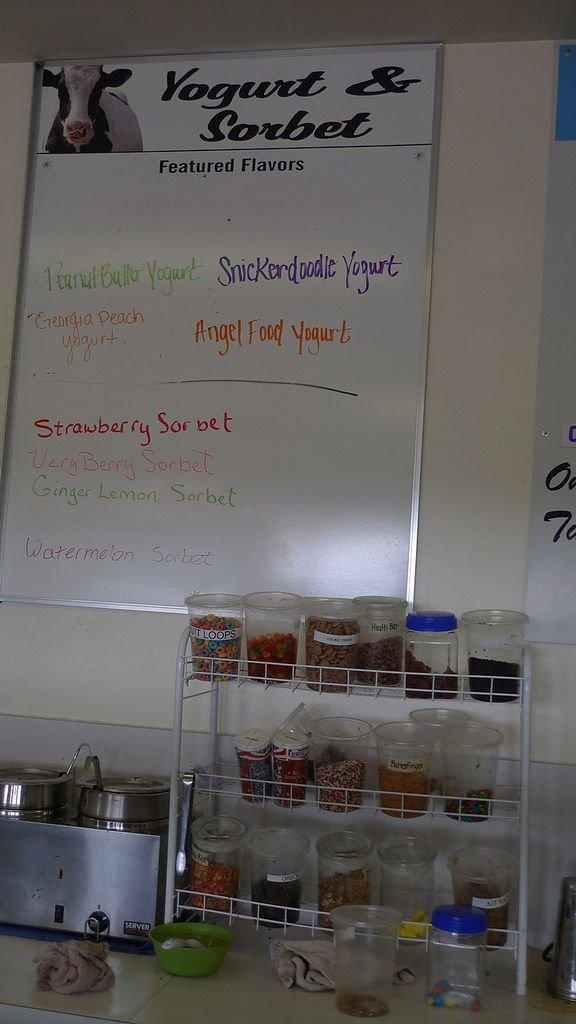 Yogurt &
Sorbet
Featured Flavors
Peanut Butter Yogurt Snickerdoodle Yogurt
Georgia Peach
Yogurt.
Angel Food Yogurt
Strawberry Sorbet
Very Berry Sorbet
Ginger Lemon Sorbet
Watermelon Sorbet
UIT LOOPS
Heath Bar
Butterfinger
OREO
KIT KA
SERVER